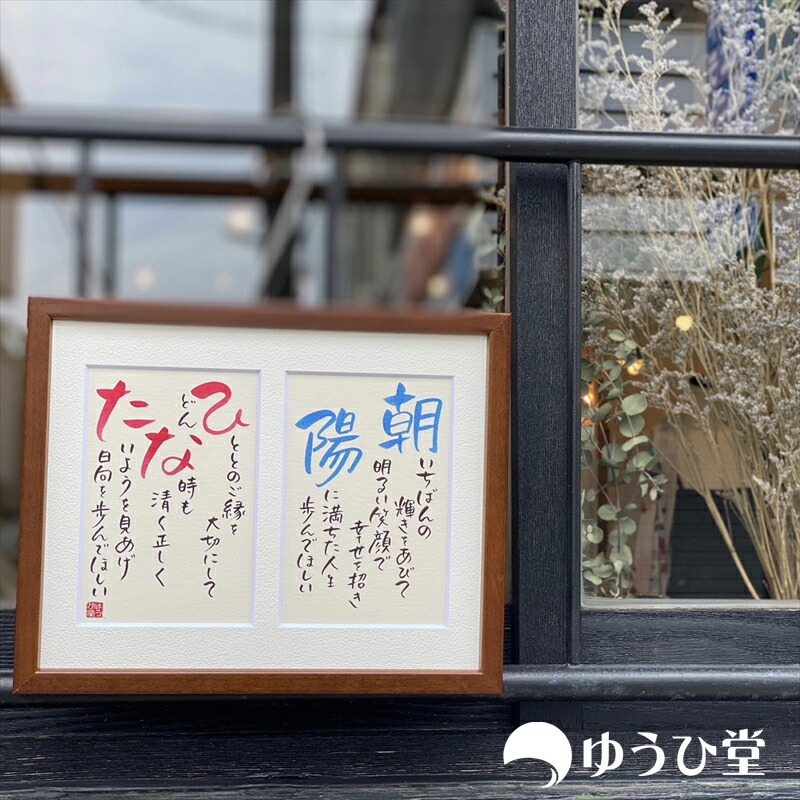 朝いちばんの
輝きをあびて
明るい笑顔で
幸せを招き
陽に満ちた人生
歩んでほしい
ひととのご縁を
大切にして
どんな時も
清く正しく
たいようを見あげ
日向を歩んでほしい
ゆうひ堂